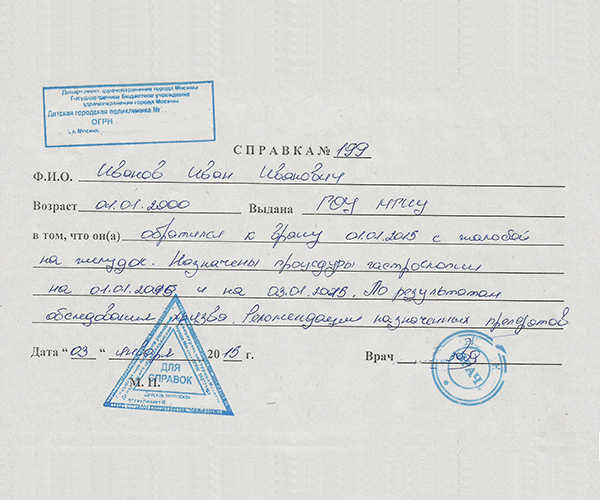 Департамент здравоохранения города Москвы
Государственное бюджетное учреждение
здравоохранения города Москвы
Детская городская поликлиника №
ОГРН
г. Москва
СПРАВКА № 199
Ф.И.О. Иванов Иван Иванович
Возраст 01.01.2000 Выдана ГОУ
в том, что он(а) обратился к врачу 01.01.2015 с жалобой
на желудок. Назначены процедуры гастроскопии
на 01.01.2015, и на 03.01.2015. По результатам
обследования язва. Рекомендации назначенных препаратов
Дата “ 03 “ января 20 15 г. Врач
ДЛЯ
СПРАВОК
М. П.
ВРАЧ